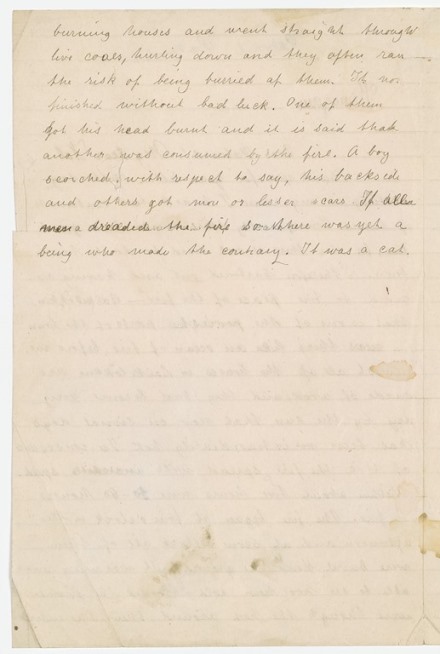 burning houses and went straight through
live coals, hurling down and they often ran
the risk of being burried at them. It no
finished without bad luck. One of them
got his head burnt and it is said that
another was consumed by the fire. A boy
scorched, with respect to say, his backside
and others got more or lesser scars. If all
men dreaded the fire so there was yet a
being who made the contrary. It was a cat.